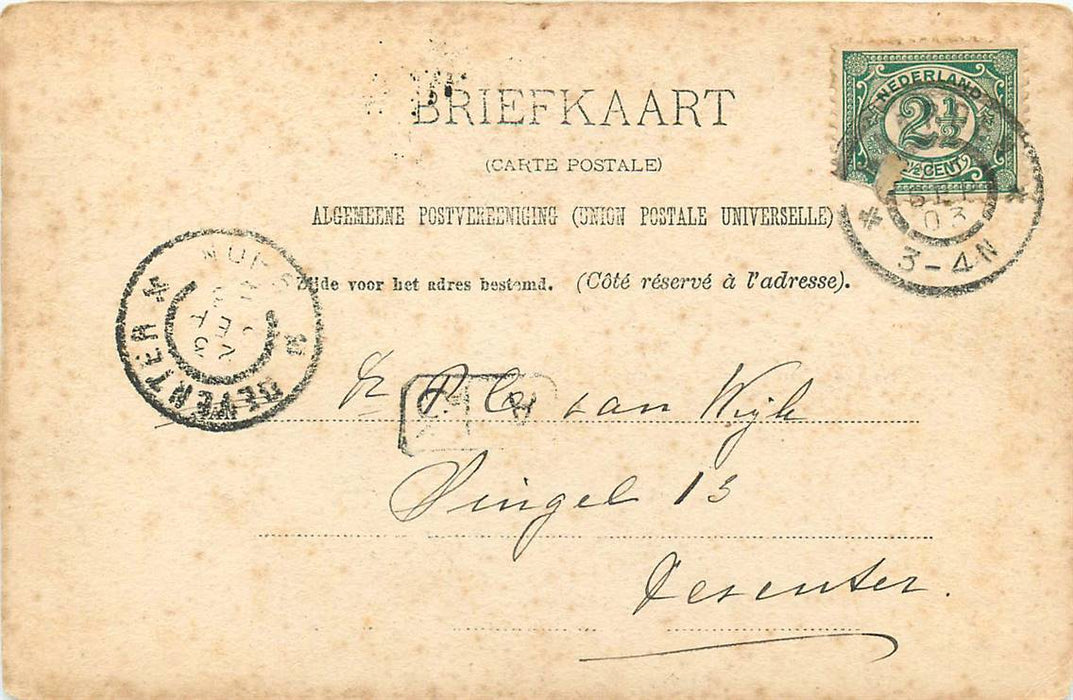 NEDERLAND
2½
½ CENT
SEP
03
3-4N
BRIEFKAART
(CARTE POSTALE)
ALGEMEENE POSTVEREENIGING (UNION POSTALE UNIVERSELLE)
Zijde voor het adres bestemd. (Côté réservé à l'adresse).
DEVENTER
van Wijk
Singel 13
Deventer.